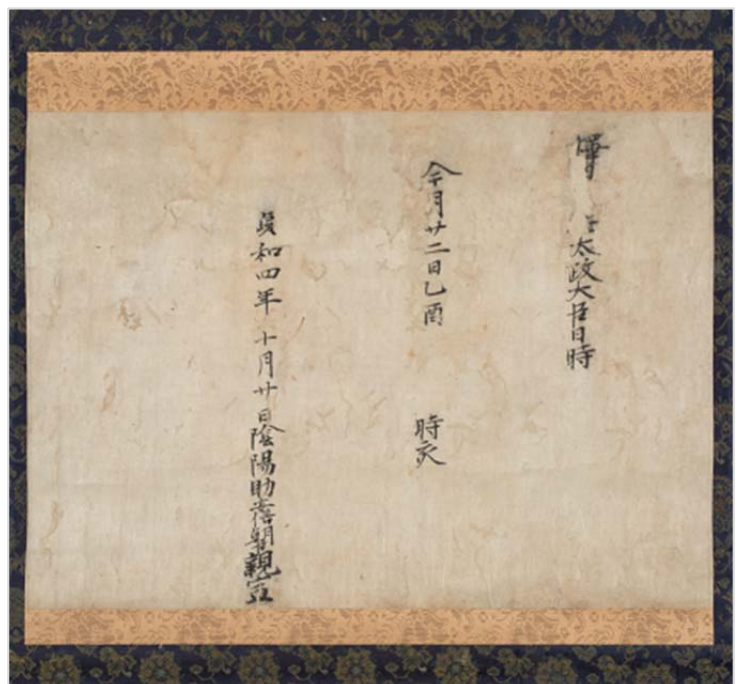 擇 太政大臣日時
今月廿二日乙酉 時亥
貞和四年十月廿日陰陽助 朝臣親宣